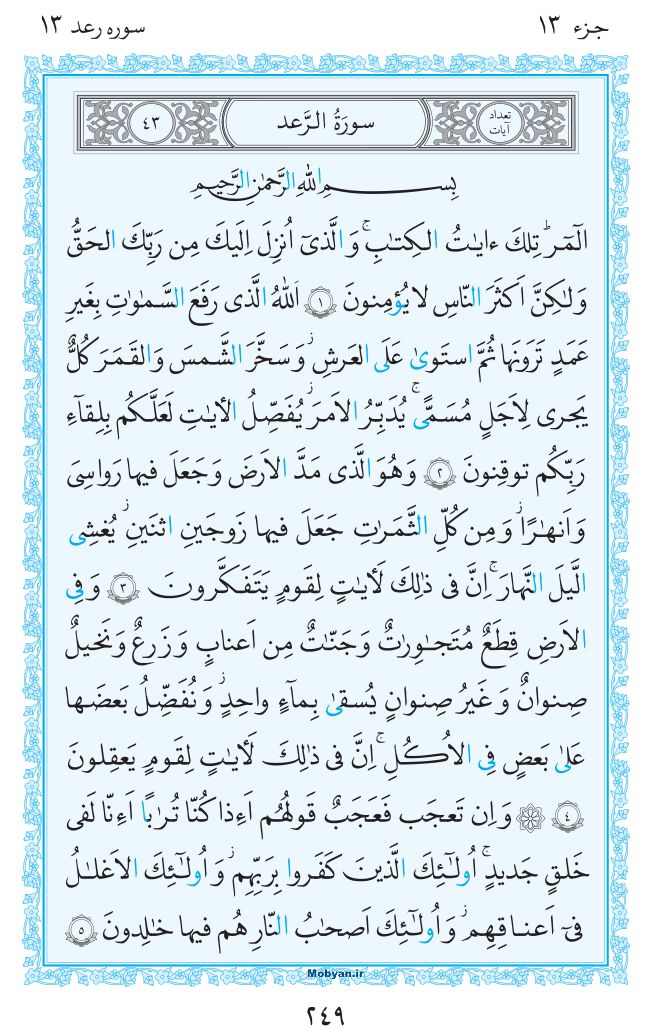 جزء ۱۳
سوره رعد ۱۳
تعداد آیات
سورَةُ الرَّعد
۴۳
بِسمِ اللهِ الرَّحمٰنِ الرَّحیمِ
الٓمٓرٰ ۚ تِلكَ ءایٰتُ الكِتٰبِ ۗ وَ الَّذیٓ اُنزِلَ اِلَیكَ مِن رَبِّكَ الحَقُّ
وَلٰكِنَّ اَكثَرَ النّاسِ لا یُؤمِنونَ ﴿۱﴾ اَللهُ الَّذی رَفَعَ السَّمٰوٰتِ بِغَیرِ
عَمَدٍ تَرَونَها ثُمَّ استَویٰ عَلَی العَرشِ ۖ وَ سَخَّرَ الشَّمسَ وَالقَمَرَ كُلٌّ
یَجری لِاَجَلٍ مُسَمًّی ۚ یُدَبِّرُ الاَمرَ ۖ یُفَصِّلُ الأیٰتِ لَعَلَّكُم بِلِقآءِ
رَبِّكُم توقِنونَ ﴿۲﴾ وَ هُوَ الَّذی مَدَّ الاَرضَ وَ جَعَلَ فیها رَواسِیَ
وَ اَنهٰرًا ۖ وَ مِن كُلِّ الثَّمَرٰتِ جَعَلَ فیها زَوجَینِ اثنَینِ ۖ یُغشِی
الَّیلَ النَّهارَ ۚ اِنَّ فی ذٰلِكَ لَأیٰتٍ لِقَومٍ یَتَفَكَّرونَ ﴿۳﴾ وَ فِی
الاَرضِ قِطَعٌ مُتَجٰوِرٰتٌ وَ جَنّٰتٌ مِن اَعنابٍ وَ زَرعٌ وَ نَخیلٌ
صِنوانٌ وَ غَیرُ صِنوانٍ یُسقیٰ بِمآءٍ واحِدٍ ۖ وَ نُفَضِّلُ بَعضَها
عَلیٰ بَعضٍ فِی الاُكُلِ ۚ اِنَّ فی ذٰلِكَ لَأیٰتٍ لِقَومٍ یَعقِلونَ
﴿۴﴾ ۞ وَ اِن تَعجَب فَعَجَبٌ قَولُهُم اَءِذا كُنّا تُرٰبًا اَءِنّا لَفی
خَلقٍ جَدیدٍ ۚ اُولٰٓئِكَ الَّذینَ كَفَروا بِرَبِّهِم ۖ وَ اُولٰٓئِكَ الاَغلٰلُ
فیٓ اَعناقِهِم ۖ وَ اُولٰٓئِكَ اَصحٰبُ النّارِ هُم فیها خٰلِدونَ ﴿۵﴾
Mobyan.ir
۲۴۹